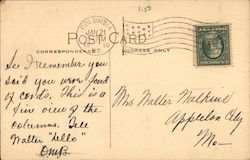 1.50
COLUMBIA
JAN 21
1910
MO.
POST CARD
CORRESPONDENCE
ADDRESS ONLY
See I remember you
said you were fond
of cards, This is a
fine view of the
columns. Tell
Walter "Hello"
Mrs Walter
Appleton City
Mo—